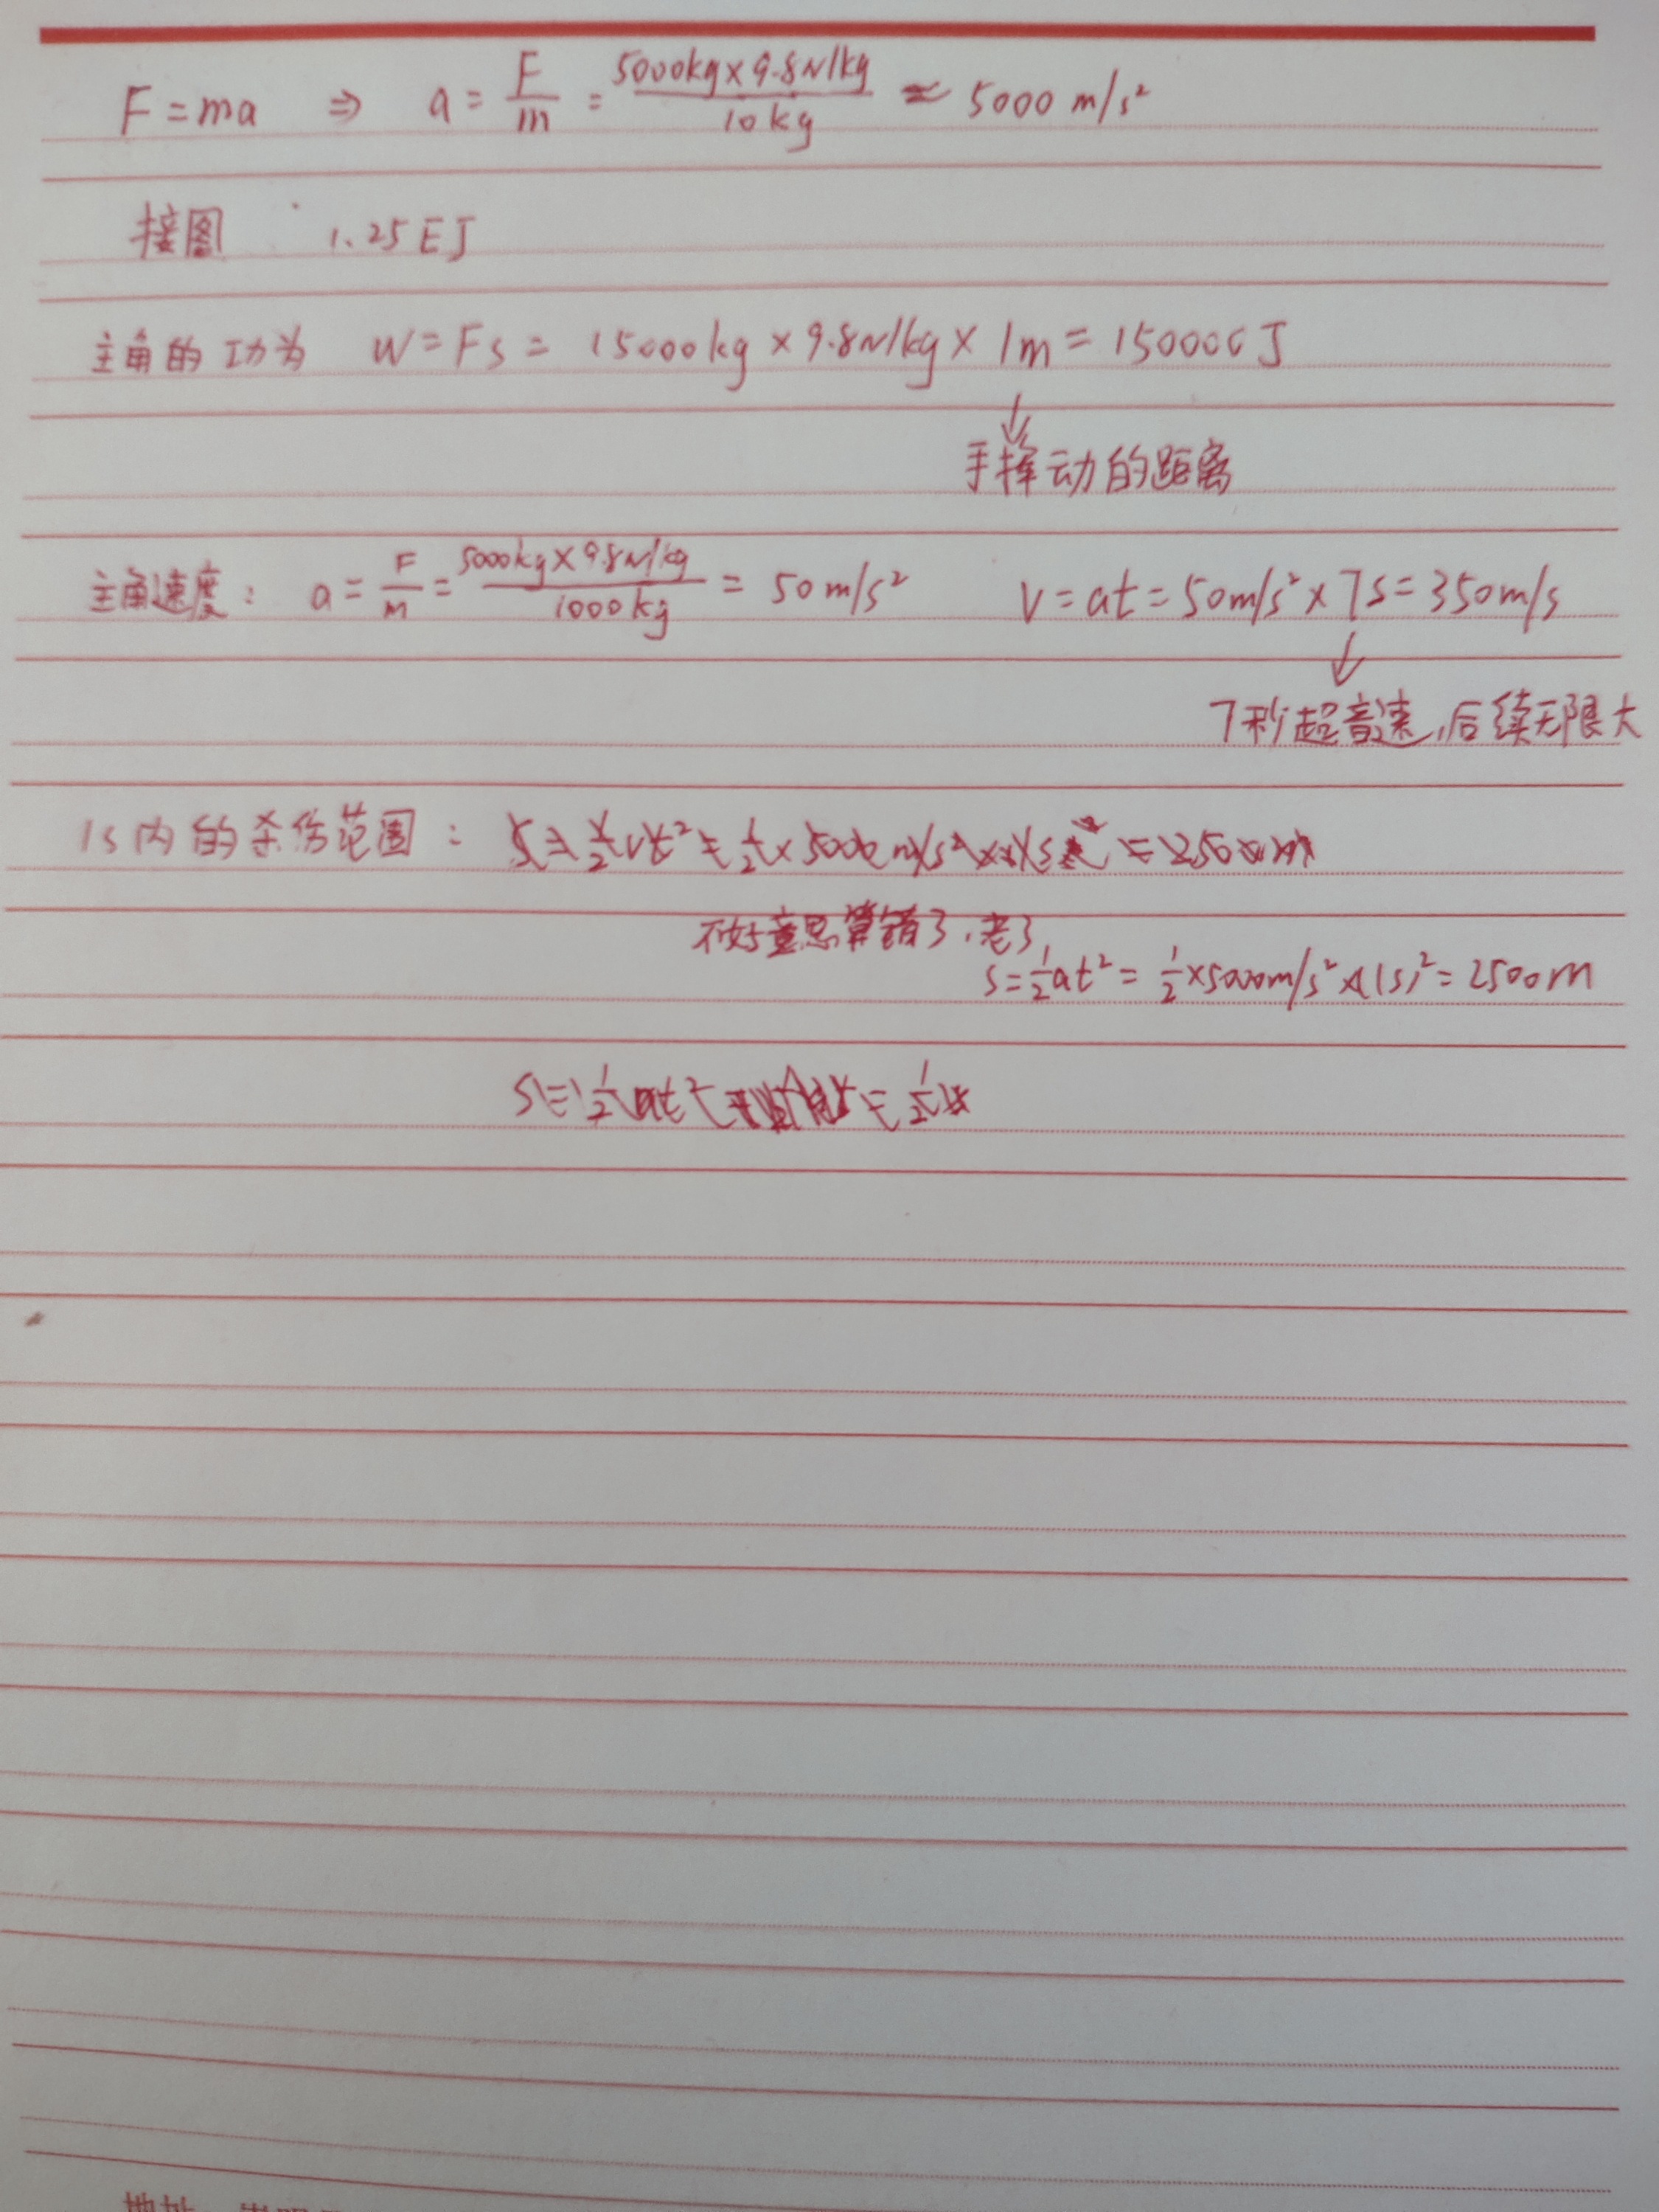 F=ma ⇒ a=F/m=5000kg×9.8N/kg/10kg≈5000m/s²
接图 1.25EJ
主角的功为 W=Fs=15000kg×9.8N/kg×1m=150000J
↓
手挥动的距离
主角速度: a=F/m=5000kg×9.8N/kg/1000kg=50m/s² V=at=50m/s²×7s=350m/s
↓
7秒超音速,后续无限大
1s内的杀伤范围:
不好意思算错了,老了
s=1/2at²=1/2×5000m/s²×(1s)²=2500m